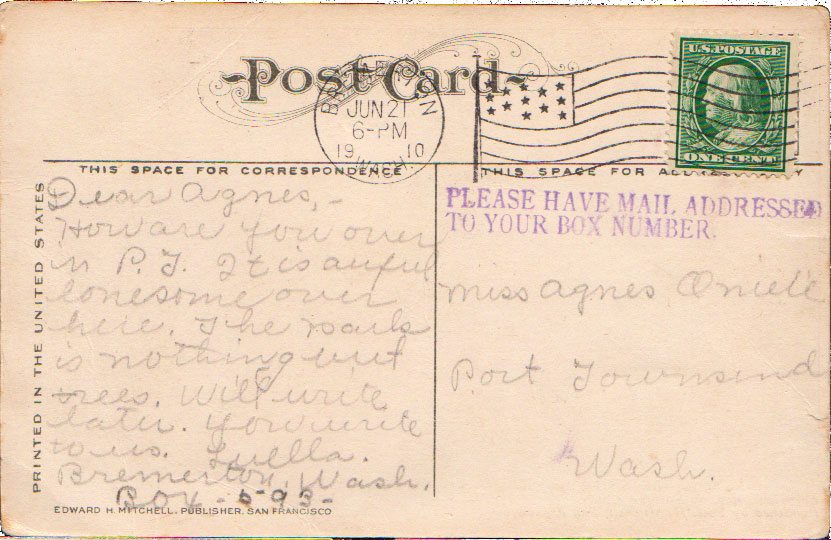 Post Card
BREMERTON
JUN 21
6-PM
1910
WASH.
U.S. POSTAGE
ONE CENT
THIS SPACE FOR CORRESPONDENCE
THIS SPACE FOR
PLEASE HAVE MAIL ADDRESSED
TO YOUR BOX NUMBER.
PRINTED IN THE UNITED STATES
Dear Agnes,-
How are you over
in P. T. It is awful
lonesome over
here. The
is nothing but
trees. Will write
later. You write
to us. Luella.
Bremerton, Wash.
Box - 593 -
Miss Agnes
Port Townsend
Wash.
EDWARD H. MITCHELL, PUBLISHER, SAN FRANCISCO